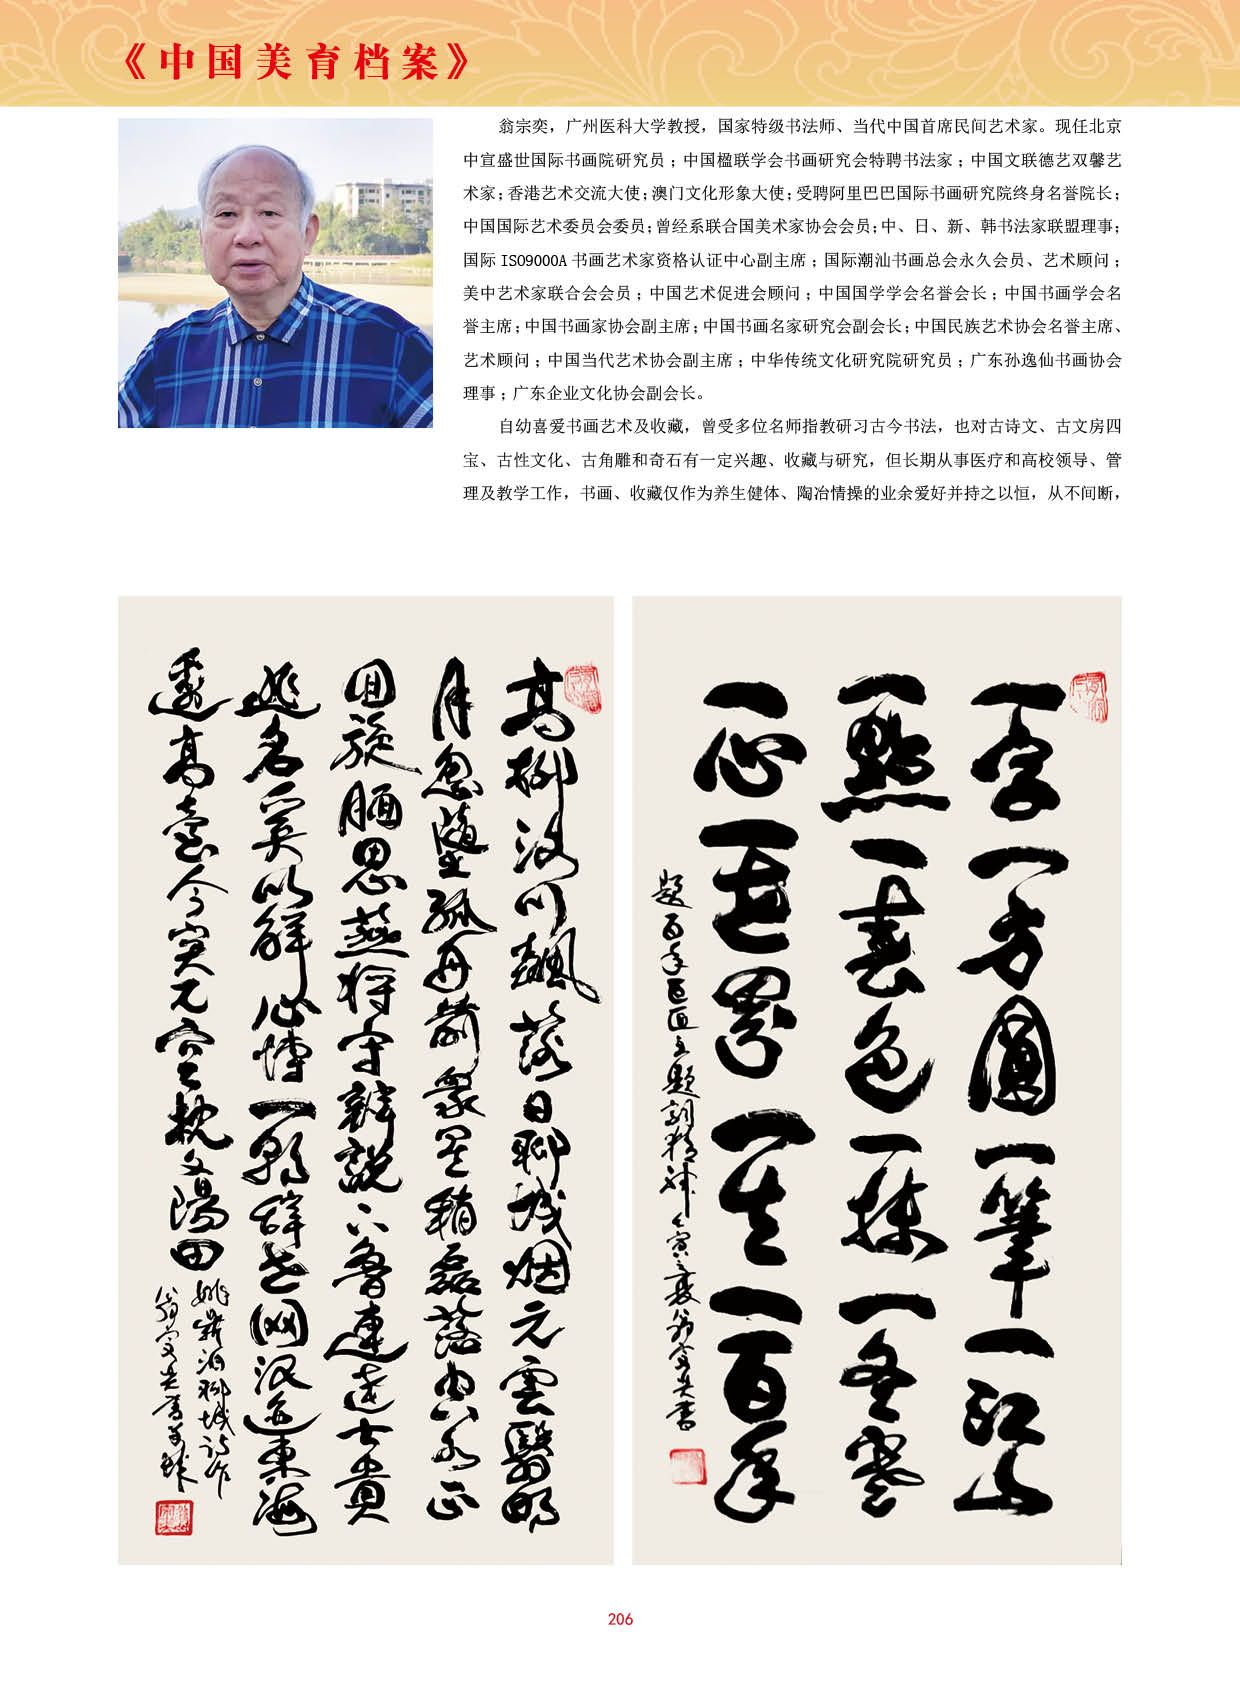 《中国美育档案》
翁宗奕，广州医科大学教授，国家特级书法师、当代中国首席民间艺术家。现任北京
中宣盛世国际书画院研究员；中国楹联学会书画研究会特聘书法家；中国文联德艺双馨艺
术家；香港艺术交流大使；澳门文化形象大使；受聘阿里巴巴国际书画研究院终身名誉院长；
中国国际艺术委员会委员；曾经系联合国美术家协会会员；中、日、新、韩书法家联盟理事；
国际 ISO9000A 书画艺术家资格认证中心副主席；国际潮汕书画总会永久会员、艺术顾问；
美中艺术家联合会会员；中国艺术促进会顾问；中国国学学会名誉会长；中国书画学会名
誉主席；中国书画家协会副主席；中国书画名家研究会副会长；中国民族艺术协会名誉主席、
艺术顾问；中国当代艺术协会副主席；中华传统文化研究院研究员；广东孙逸仙书画协会
理事；广东企业文化协会副会长。
自幼喜爱书画艺术及收藏，曾受多位名师指教研习古今书法，也对古诗文、古文房四
宝、古性文化、古角雕和奇石有一定兴趣、收藏与研究，但长期从事医疗和高校领导、管
理及教学工作，书画、收藏仅作为养生健体、陶冶情操的业余爱好并持之以恒，从不间断，
一字一方圓一筆一江山
一點一春色一捺一冬寒
一心一世界一生一百年
題百年百匠主題詞精神壬寅之夏翁宗奕書
高柳汲川飆落日聊城烟元雲翳明
月忽墮孤舟前眾星稍磊落
回旋思燕將守辭說下魯連達士貴
逃名奚以解心一朝辭世网汲迹東海
邊高臺今突兀空枕文陽田
姚鼐泊聊城詩作
翁宗奕書
206